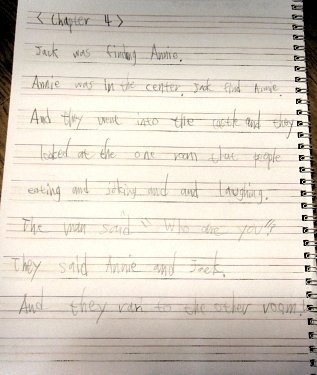 < Chapter 4 >
Jack was finding Annie.
Annie was in the center. Jack find Annie.
And they went into the castle and they
looked at the one room that people
eating and joking and and laughing.
The man said "Who are you"?
They said Annie and Jack.
And they ran to the other room!